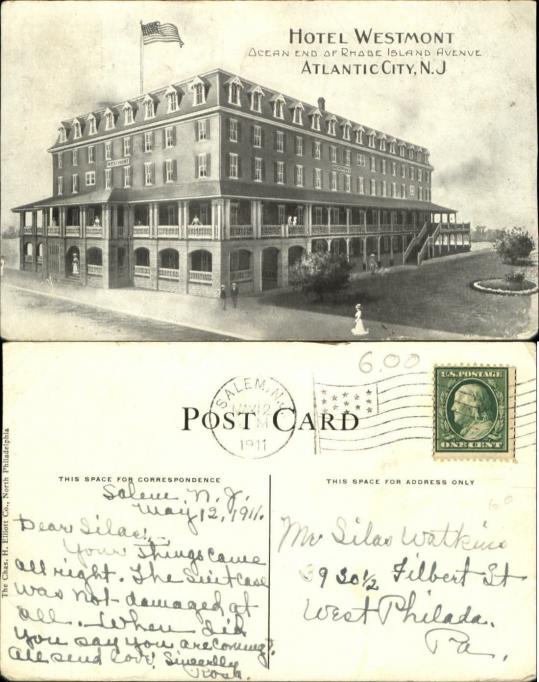 HOTEL WESTMONT
OCEAN END OF RHODE ISLAND AVENUE
ATLANTIC CITY, N.J
WESTMONT
6.00
SALEM, N.J.
MAY 12
M
1911
U.S. POSTAGE
ONE CENT
POST CARD
THIS SPACE FOR CORRESPONDENCE
THIS SPACE FOR ADDRESS ONLY
The Chas. H. Elliott Co., North Philadelphia
Salem, N. J.
May 12, 1911.
Dear Silas:—
Your things came
all right. The Suit case
was not damaged at
all. When did
you say you are coming?
All send love! Sincerely
Rosa.
60
Mr Silas Watkins
3930½ Filbert St
West Philada.
Pa.